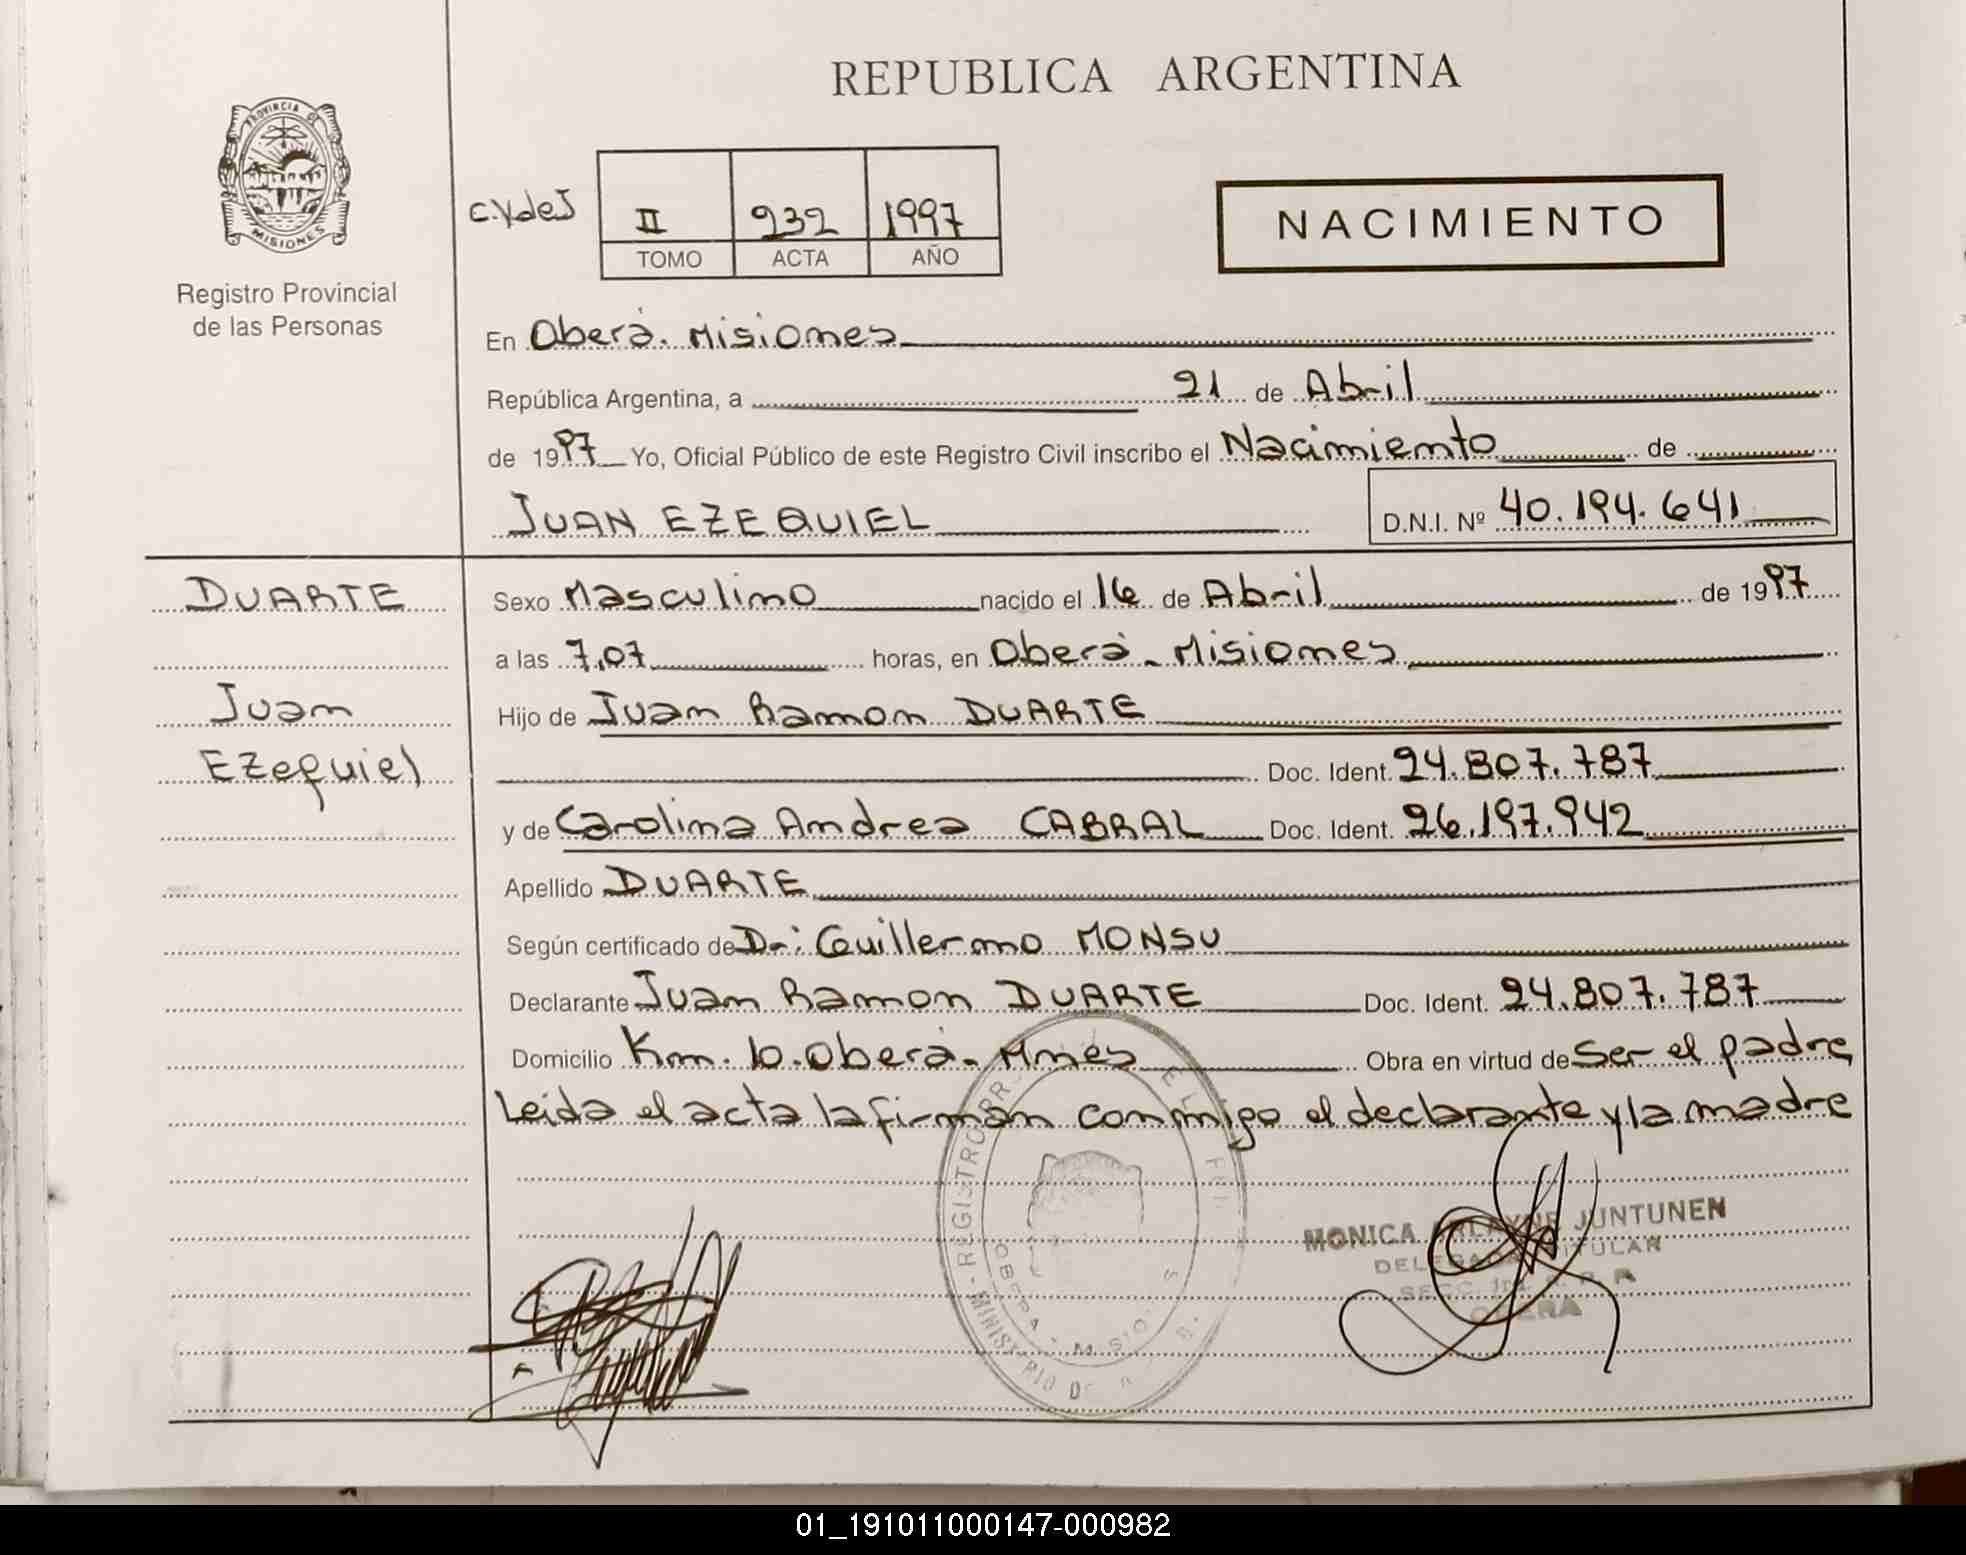 REPUBLICA ARGENTINA
PROVINCIA DE
MISIONES
Registro Provincial
de las Personas
C.YdeJ
II 232 1997
TOMO ACTA AÑO
NACIMIENTO
En Oberá. Misiones
República Argentina, a 21 de Abril
de 1997 Yo, Oficial Público de este Registro Civil inscribo el Nacimiento de
JUAN EZEQUIEL D.N.I. Nº 40.194.641
DUARTE
Juan
Ezequiel
Sexo Masculino nacido el 16 de Abril de 1997
a las 7,07 horas, en Oberá - Misiones
Hijo de Juan Ramon DUARTE
Doc. Ident. 24.807.787
y de Carolina Andrea CABRAL Doc. Ident. 26.197.942
Apellido DUARTE
Según certificado de Dr: Guillermo MONSU
Declarante Juan Ramon DUARTE Doc. Ident. 24.807.787
Domicilio Km. 10. Oberá - Mnes Obra en virtud de Ser el padre
Leida el acta la firman conmigo el declarante y la madre
MONICA JUNTUNEN
TITULAR
OBERA
REGISTRO
OBERA
01_191011000147-000982